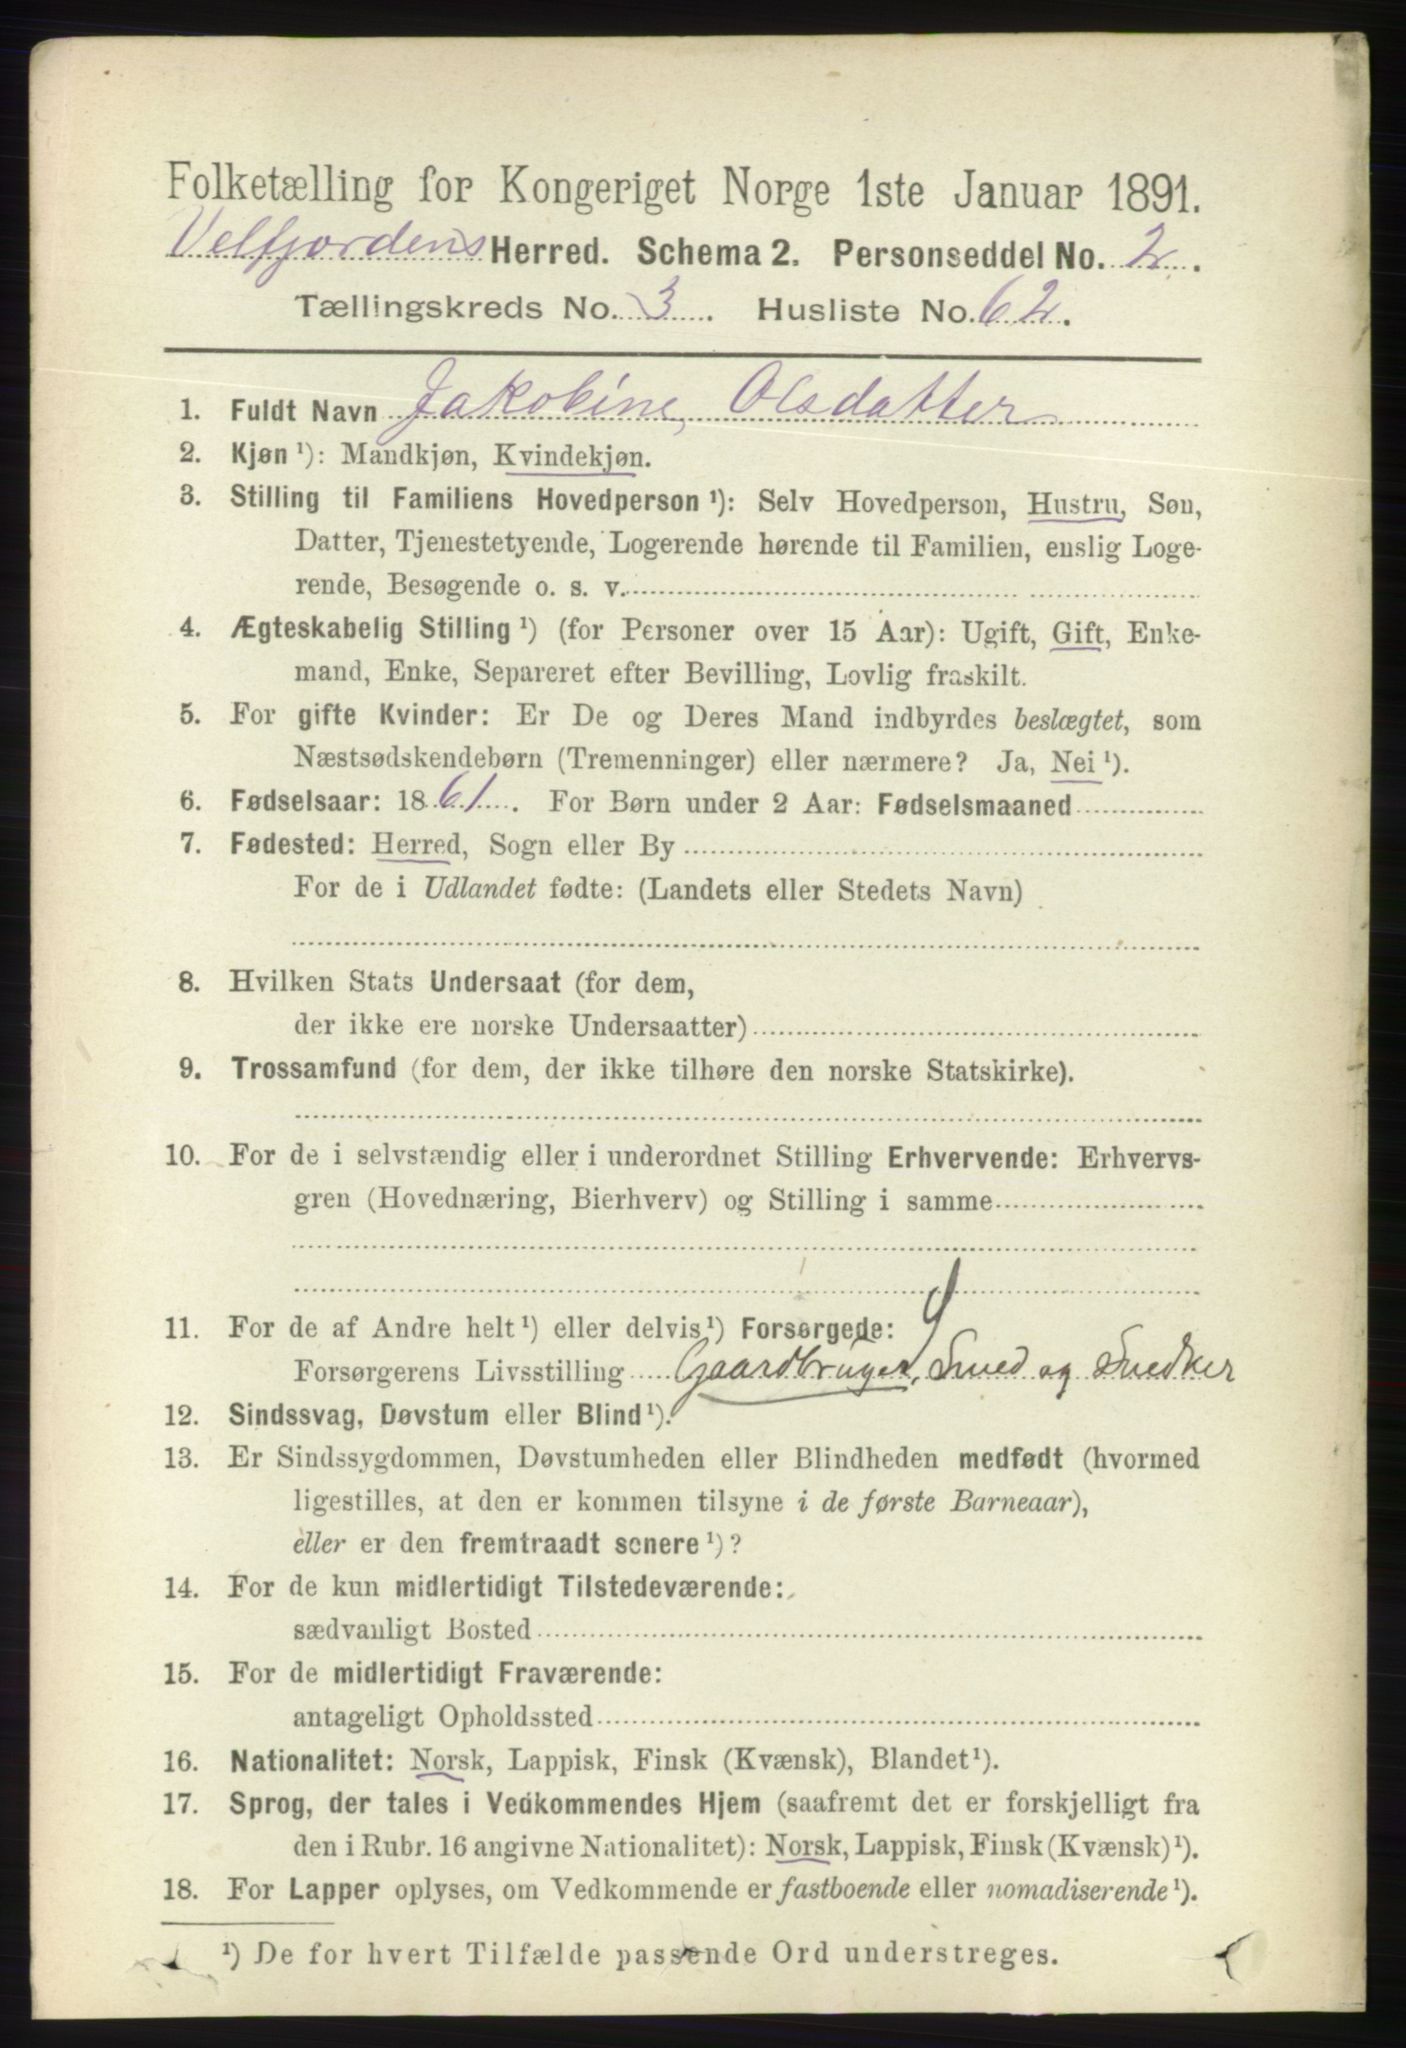 Folketælling for Kongeriget Norge 1ste Januar 1891.
Velfjordens Herred. Schema 2. Personseddel No. 2.
Tællingskreds No. 3. Husliste No. 62.
1. Fuldt Navn Jakobine Olsdatter
2. Kjøn ¹): Mandkjøn, Kvindekjøn.
3. Stilling til Familiens Hovedperson ¹): Selv Hovedperson, Hustru, Søn,
Datter, Tjenestetyende, Logerende hørende til Familien, enslig Loge-
rende, Besøgende o. s. v.
4. Ægteskabelig Stilling ¹) (for Personer over 15 Aar): Ugift, Gift, Enke-
mand, Enke, Separeret efter Bevilling, Lovlig fraskilt.
5. For gifte Kvinder: Er De og Deres Mand indbyrdes beslægtet, som
Næstsødskendebørn (Tremenninger) eller nærmere? Ja, Nei ¹).
6. Fødselsaar: 1861. For Børn under 2 Aar: Fødselsmaaned
7. Fødested: Herred, Sogn eller By
For de i Udlandet fødte: (Landets eller Stedets Navn)
8. Hvilken Stats Undersaat (for dem,
der ikke ere norske Undersaatter)
9. Trossamfund (for dem, der ikke tilhøre den norske Statskirke).
10. For de i selvstændig eller i underordnet Stilling Erhvervende: Erhvervs-
gren (Hovednæring, Bierhverv) og Stilling i samme
11. For de af Andre helt ¹) eller delvis ¹) Forsørgede:
Forsørgerens Livsstilling Gaardbruger, Smed og Snedker
12. Sindssvag, Døvstum eller Blind ¹).
13. Er Sindssygdommen, Døvstumheden eller Blindheden medfødt (hvormed
ligestilles, at den er kommen tilsyne i de første Barneaar),
eller er den fremtraadt senere ¹)?
14. For de kun midlertidigt Tilstedeværende:
sædvanligt Bosted
15. For de midlertidigt Fraværende:
antageligt Opholdssted
16. Nationalitet: Norsk, Lappisk, Finsk (Kvænsk), Blandet ¹).
17. Sprog, der tales i Vedkommendes Hjem (saafremt det er forskjelligt fra
den i Rubr. 16 angivne Nationalitet): Norsk, Lappisk, Finsk (Kvænsk) ¹).
18. For Lapper oplyses, om Vedkommende er fastboende eller nomadiserende ¹).
¹) De for hvert Tilfælde passende Ord understreges.